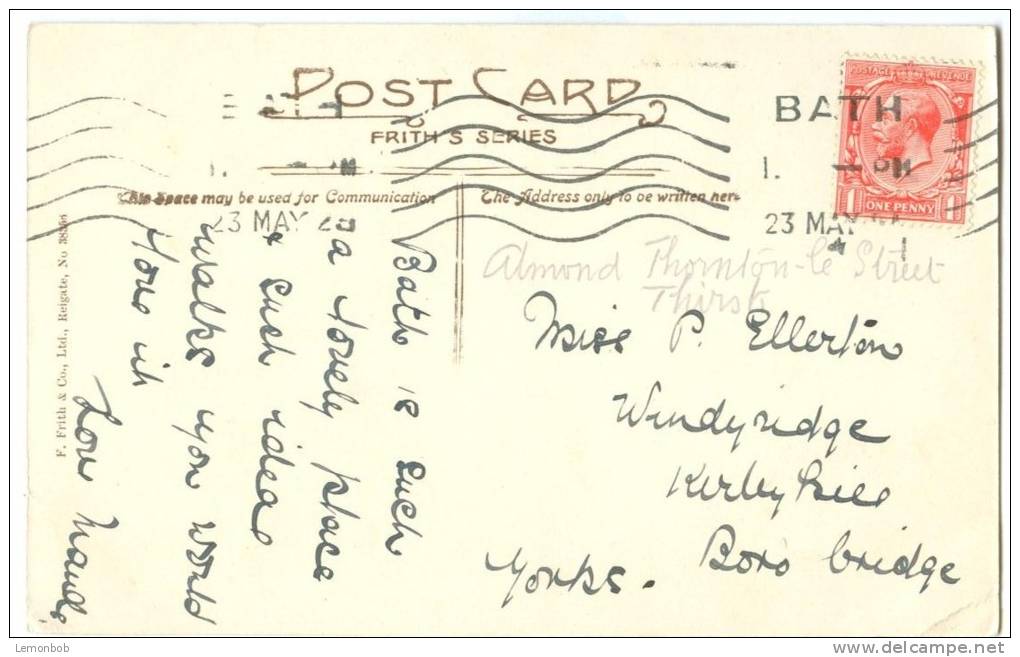 POST CARD
FRITH'S SERIES
This Space may be used for Communication
The Address only to be written here
POSTAGE REVENUE
ONE PENNY
BATH
23 MAY
23 MAY
F. Frith & Co., Ltd., Reigate, No
Bath is such
a lovely place
& such ideal
walks you would
love it
Love Maud
Almond Thornton-le Street
Thirsk
Miss P. Ellerton
Windyridge
Kirby Hill
Boro'bridge
Yorks.
Lemonbob
www.delcampe.net